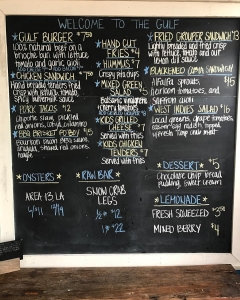 WELCOME TO THE GULF
*GULF BURGER *7.50
100% natural beef on a
brioche bun with lettuce
tomato and garlic aioli
*CHICKEN SANDWICH *7
Hand breaded tenders fried
crisp with lettuce, tomato,
spicy buttermilk sauce
*PORK TACOS *12
Chipotle slaw, pickled
red onions, cilantro
*BBQ BRISKET PO BOY *15
Bourbon onion BBQ sauce,
arugula, shaved red onions,
*HAND CUT
FRIES *4
*HUMMUS *7
Crispy pita chips
*MIXED GREEN
SALAD *5
Balsamic vinaigrette
*KIDS GRILLED
CHEESE *7
Served with fries
*KIDS CHICKEN
TENDERS *7
Served with fries
*FRIED GROUPER SANDWICH *13
Lightly breaded and fried crisp
with lettuce, tomato and our
lemon dill sauce
*BLACKENED COBIA SANDWICH *15
Alfalfa sprouts,
heirloom tomatoes, and
saffron aioli
*WEST INDIES SALAD *16
Local greens, grape tomatoes,
lump crab meat
*DESSERT *5
Chocolate chip bread
pudding, sweet cream
*OYSTERS*
AREA 13, LA
*RAW BAR*
SNOW CRAB
LEGS
½# *12
1# *22
*LEMONADE*
FRESH SQUEEZED *3.50
MIXED BERRY *4